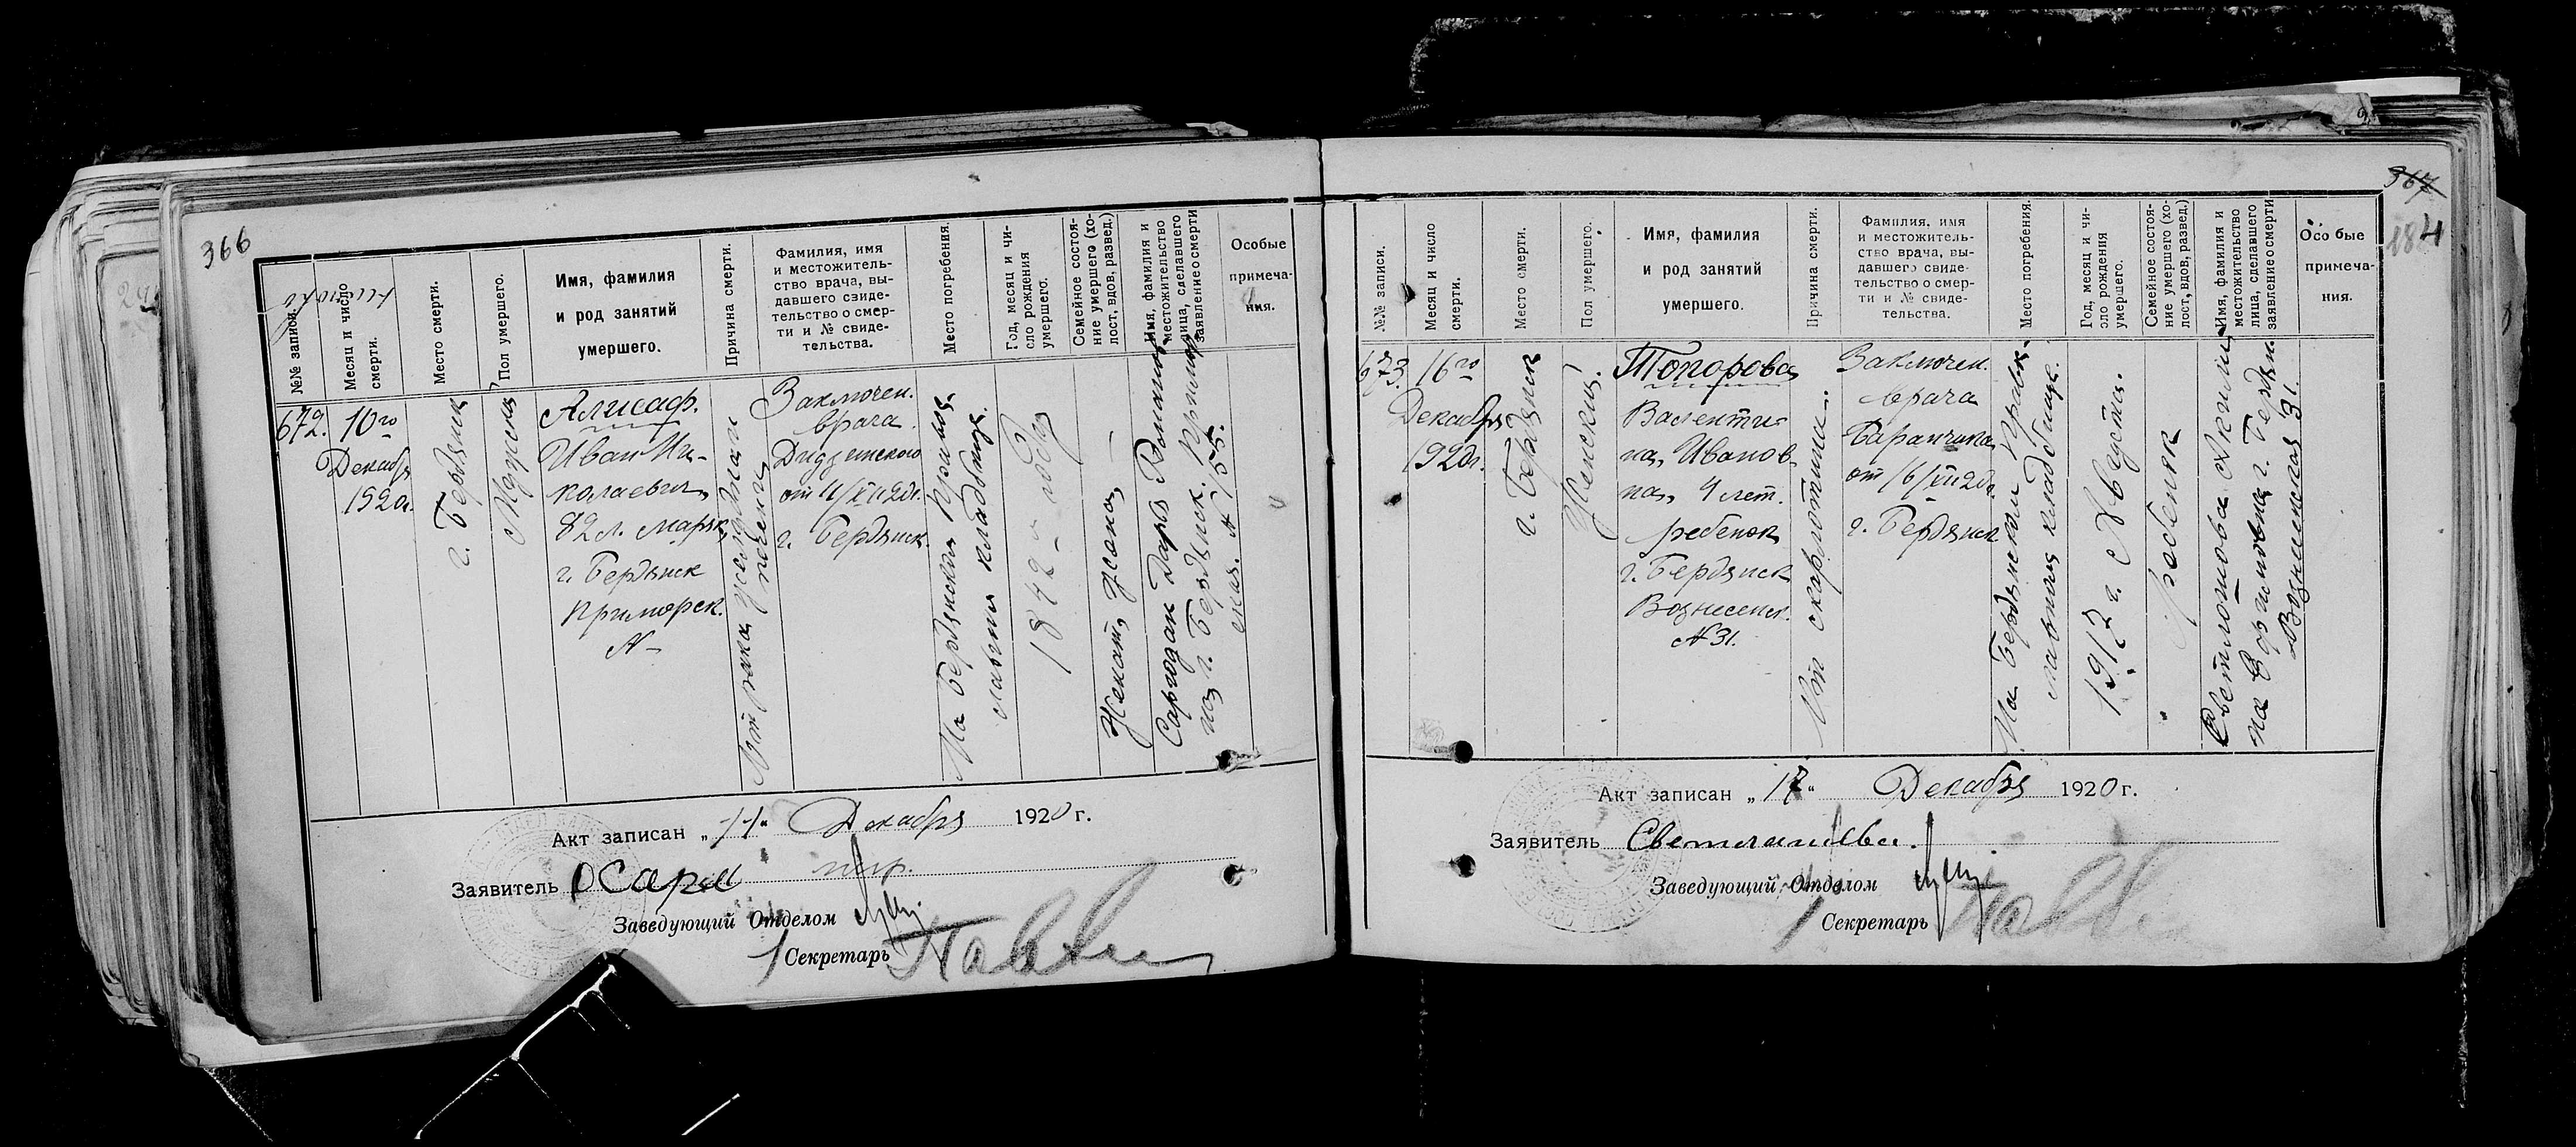 366
№№ записи.
Месяц и число
смерти.
Место смерти.
Пол умершего.
Имя, фамилия
и род занятий
умершего.
Причина смерти.
Фамилия, имя
и местожитель-
ство врача, вы-
давшего свиде-
тельство о смер-
ти и № свиде-
тельства.
Место погребения.
Год, месяц и чи-
сло рождения
умершего.
Семейное состоя-
ние умершего (хо-
лост, вдов, развед.)
Имя, фамилия и
местожительство
лица, сделавшего
заявление о смерти
Особые
примеча-
ния.
672.
10го
Декабря
1920г.
г. Бердянск
Мужской
Алисаф.
Иван Ни-
колаевич,
82 л. моряк
г. Бердянск
Приморск.
№ –
От рака желудка и
печени
Заключен.
врача
от 11/XII 20г.
г. Бердянск.
На Бердянском правос-
лавном кладбище.
Женат,
Дарья
г. Бердянск.
№ 55.
Акт записан „11“ Декабря 1920 г.
Заявитель
Заведующий Отделом
Секретарь
367
184
№№ записи.
Месяц и число
смерти.
Место смерти.
Пол умершего.
Имя, фамилия
и род занятий
умершего.
Причина смерти.
Фамилия, имя
и местожитель-
ство врача, вы-
давшего свиде-
тельство о смер-
ти и № свиде-
тельства.
Место погребения.
Год, месяц и чи-
сло рождения
умершего.
Семейное состоя-
ние умершего (хо-
лост, вдов, развед.)
Имя, фамилия и
местожительство
лица, сделавшего
заявление о смерти
Особые
примеча-
ния.
673.
16го
Декабря
1920г.
г. Бердянск
Женский.
Топорова
Валенти-
на, Иванов-
на, 4 лет.
ребенок
г. Бердянск
Вознесенск.
№ 31.
От скарлотины.
Заключен.
врача
Баранчика
от 16/XII 20г.
г. Бердянск
На Бердянском правос-
лавном кладбище.
г. Августа.
ребенок
г. Бердян.
Вознесенская 31.
Акт записан „17“ Декабря 1920 г.
Заявитель
Заведующий Отделом
Секретарь